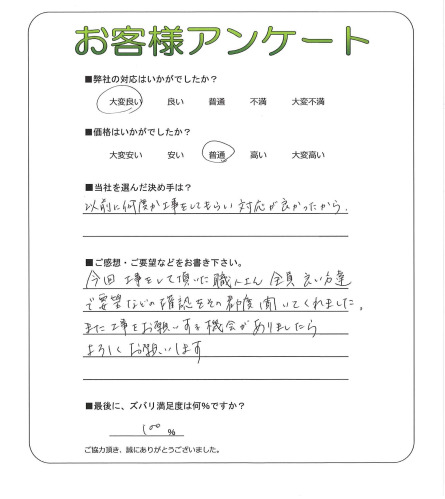 お客様アンケート
■弊社の対応はいかがでしたか？
大変良い 良い 普通 不満 大変不満
■価格はいかがでしたか？
大変安い 安い 普通 高い 大変高い
■当社を選んだ決め手は？
以前に何度か工事をしてもらい対応が良かったから.
■ご感想・ご要望などをお書き下さい。
今回工事をして頂いた職人さん全員良い方達
で要望などの確認をその都度聞いてくれました。
また工事をお願いする機会がありましたら
よろしくお願いします
■最後に、ズバリ満足度は何%ですか？
100 %
ご協力頂き、誠にありがとうございました。